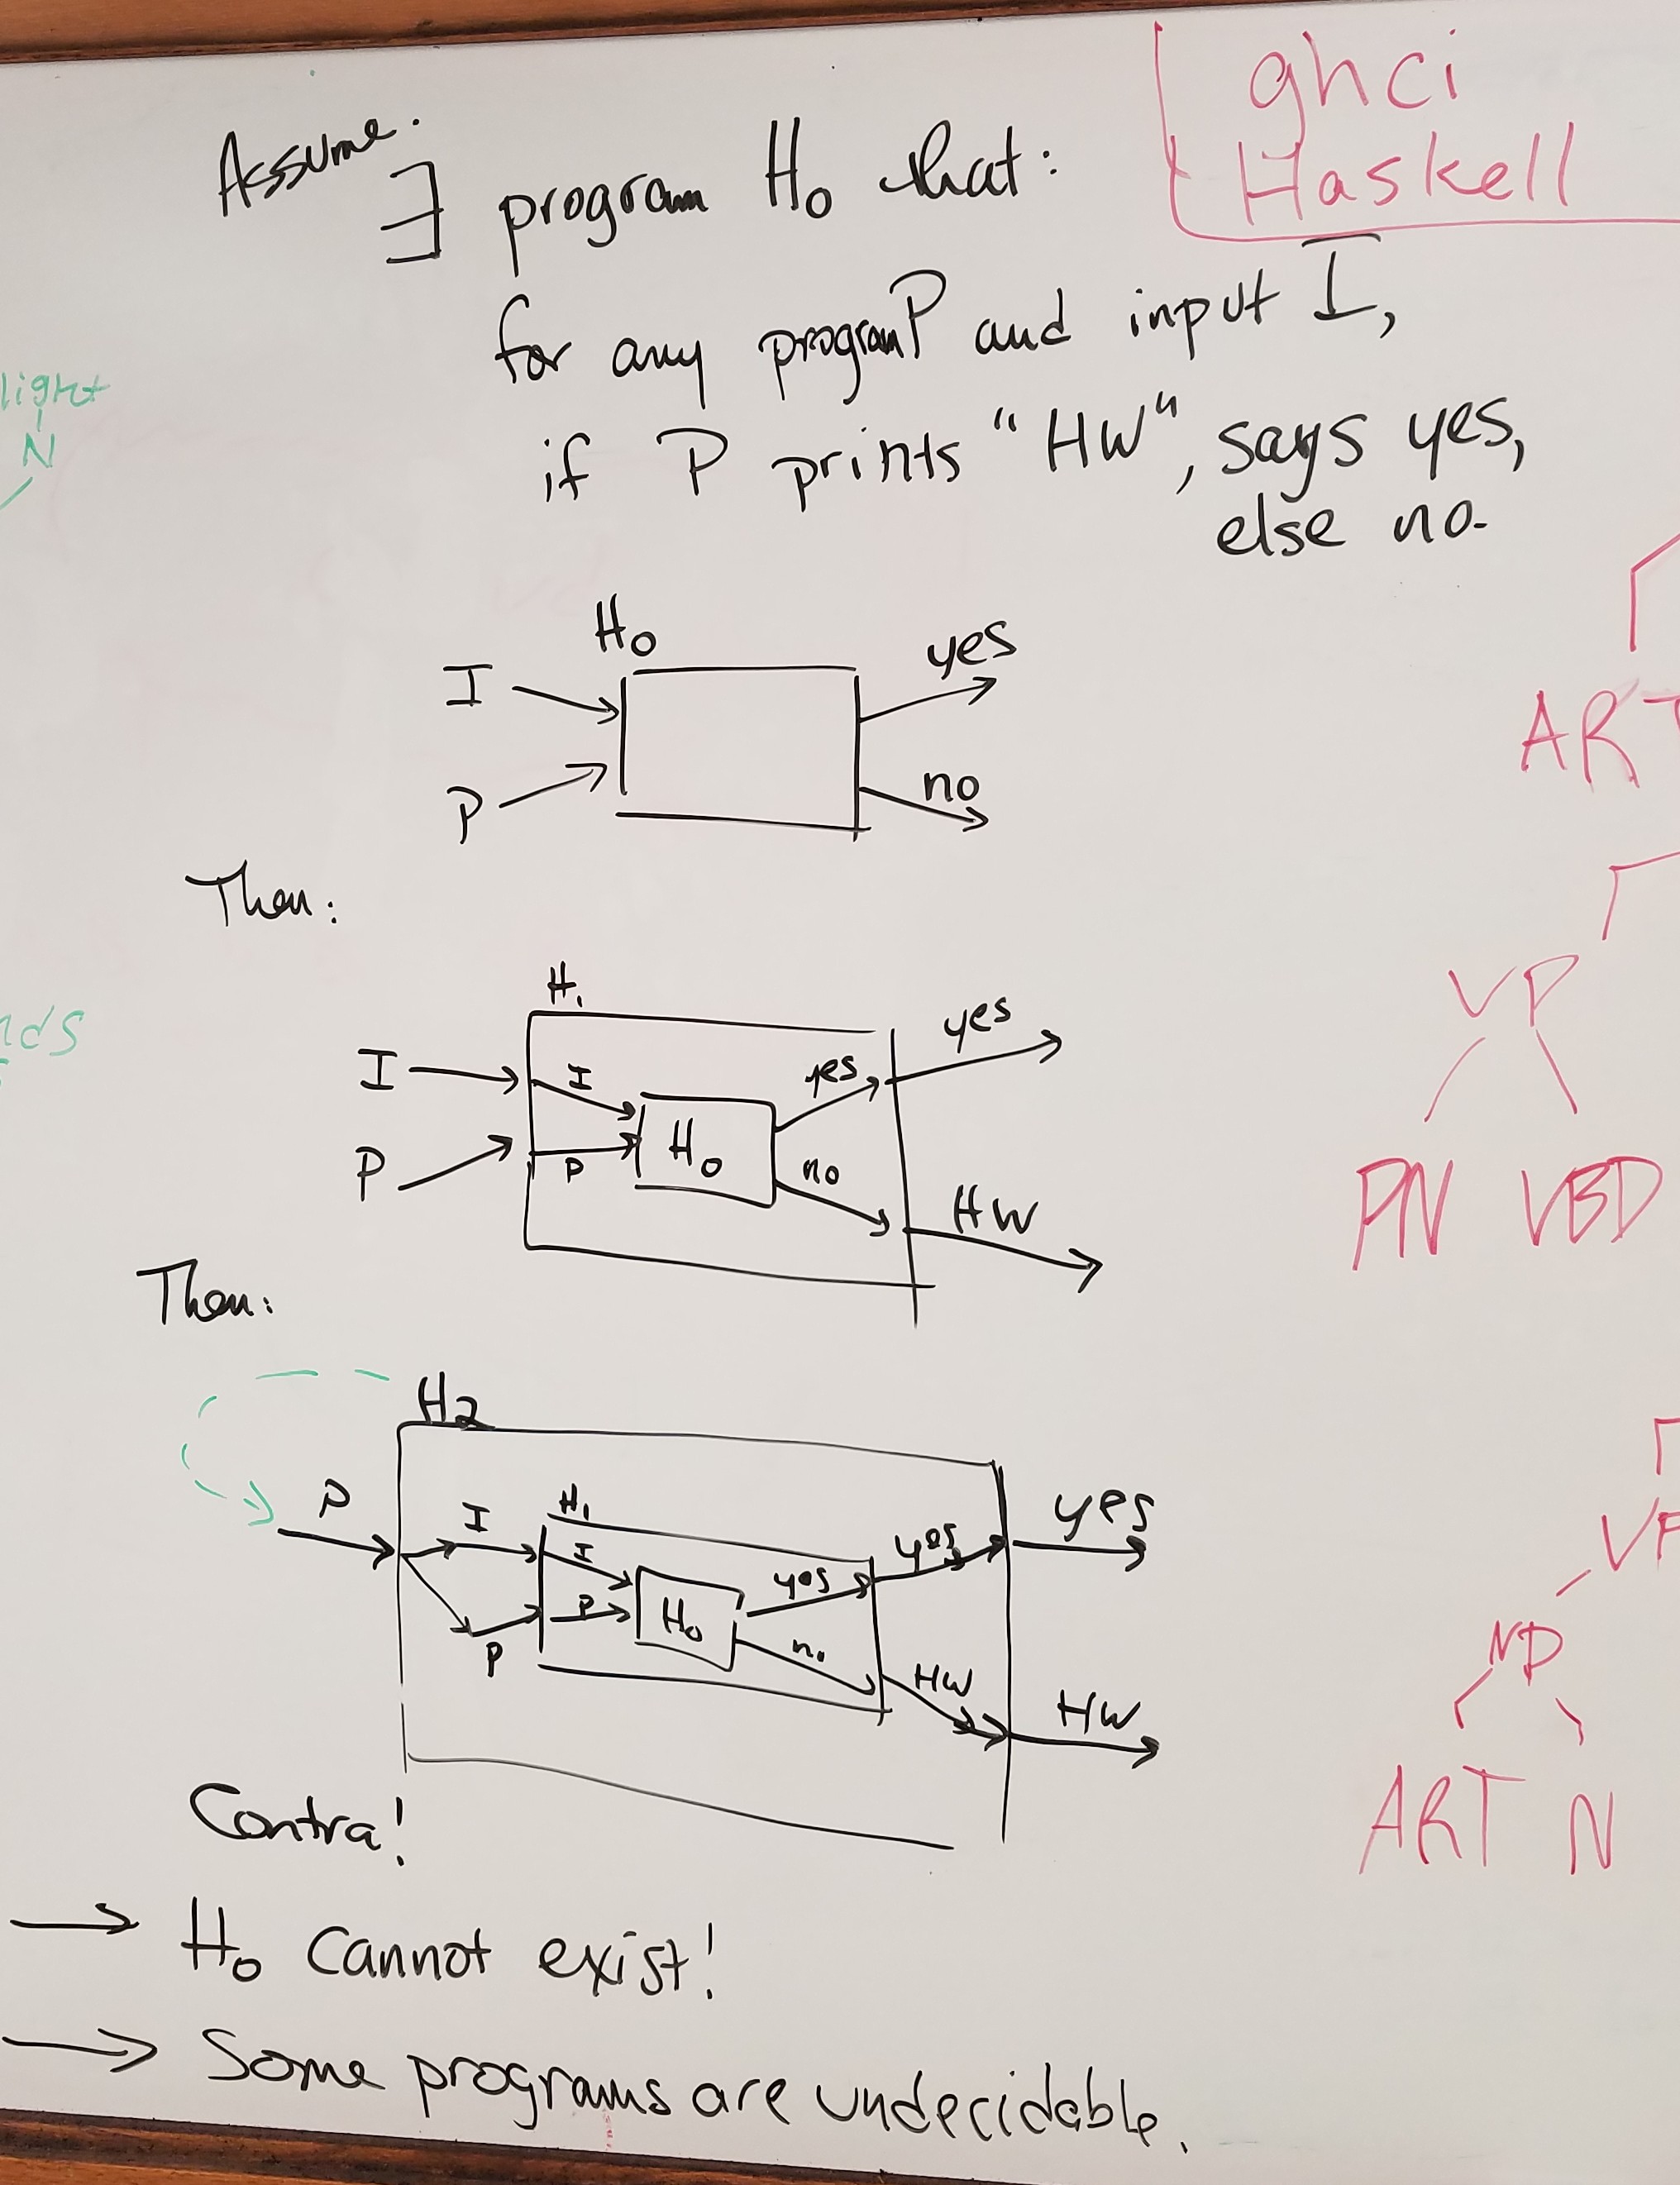 ghci
Haskell
Assume.
∃ program H₀ that:
for any program P and input I,
if P prints "HW", says yes,
else no.
light
N
H₀
I
yes
P
no
ART
Then:
VP
PN VBD
H₁
I
I
yes
yes
P
P
H₀
no
HW
Then:
H2
P
I
H₁
I
yes
yes
yes
P
P
H₀
no
HW
HW
NP
ART N
Contra!
→ H₀ cannot exist!
→ Some programs are undecidable.